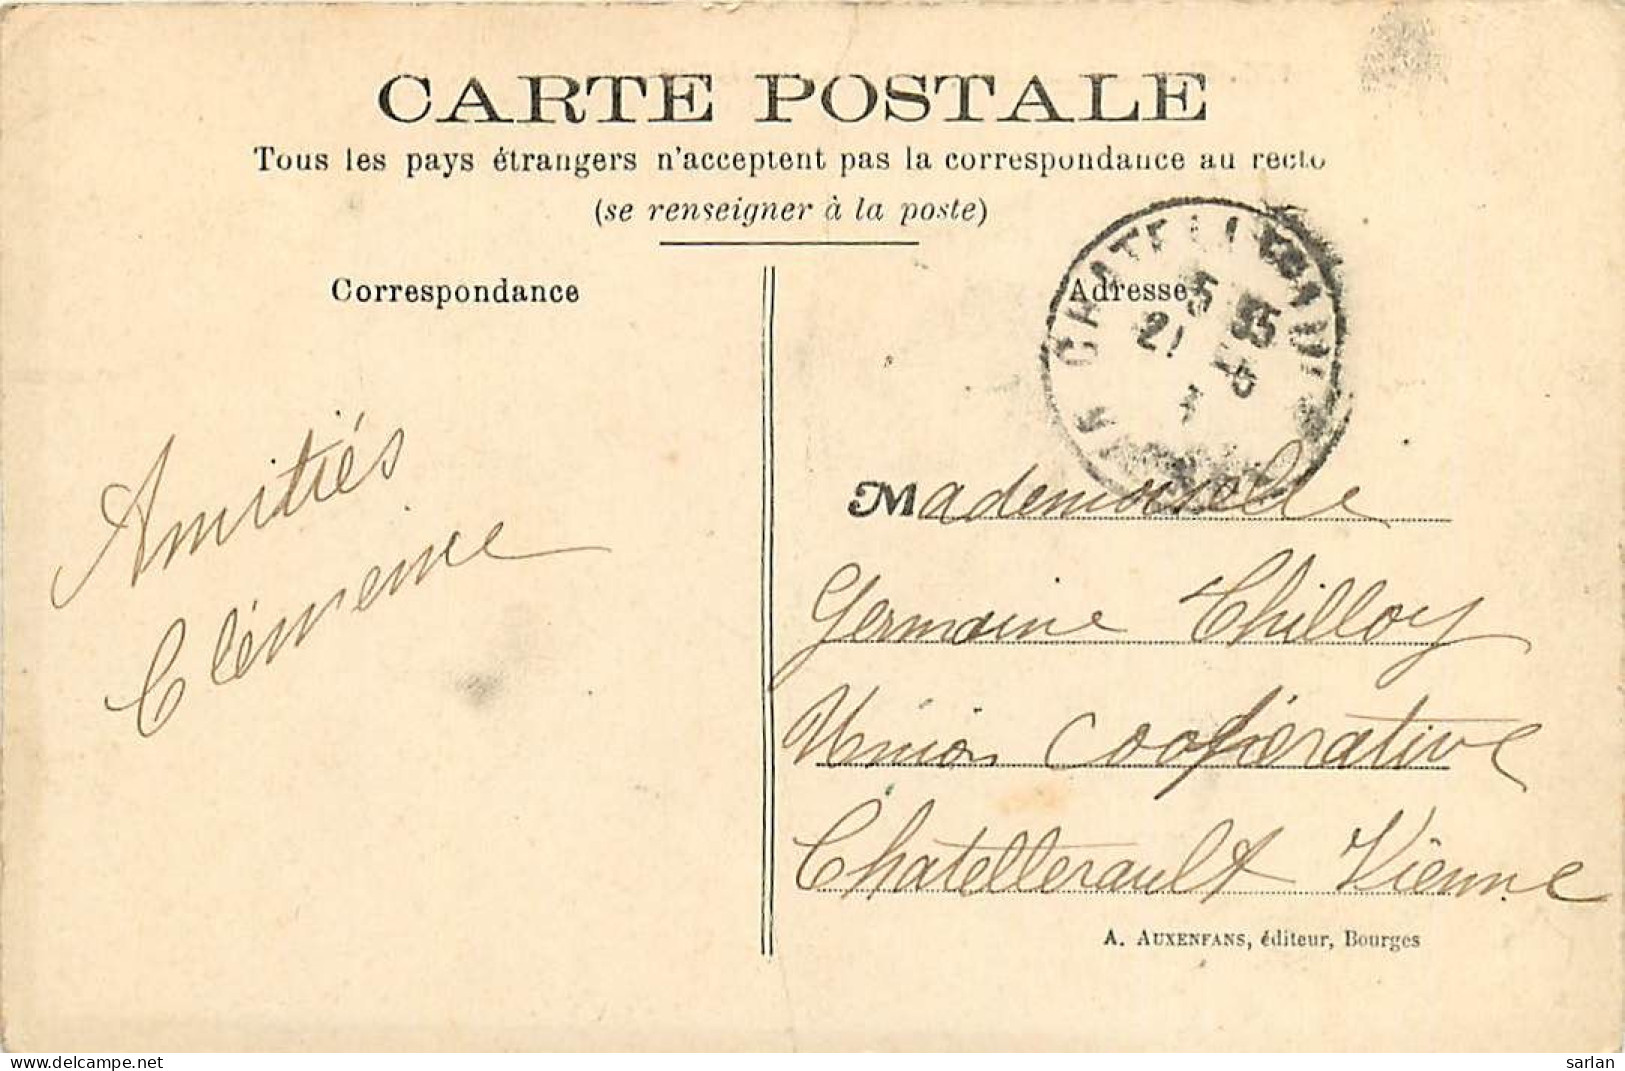 CARTE POSTALE
Tous les pays étrangers n'acceptent pas la correspondance au recto
(se renseigner à la poste)
Correspondance
Adresse
CHATELLERAU
5 35
21 -5
Amitiés
Clémence
Mademoiselle
Germaine Chilloy
Union Coopérative
Chatellerault Vienne
A. AUXENFANS, éditeur, Bourges
www.delcampe.net
sarlan